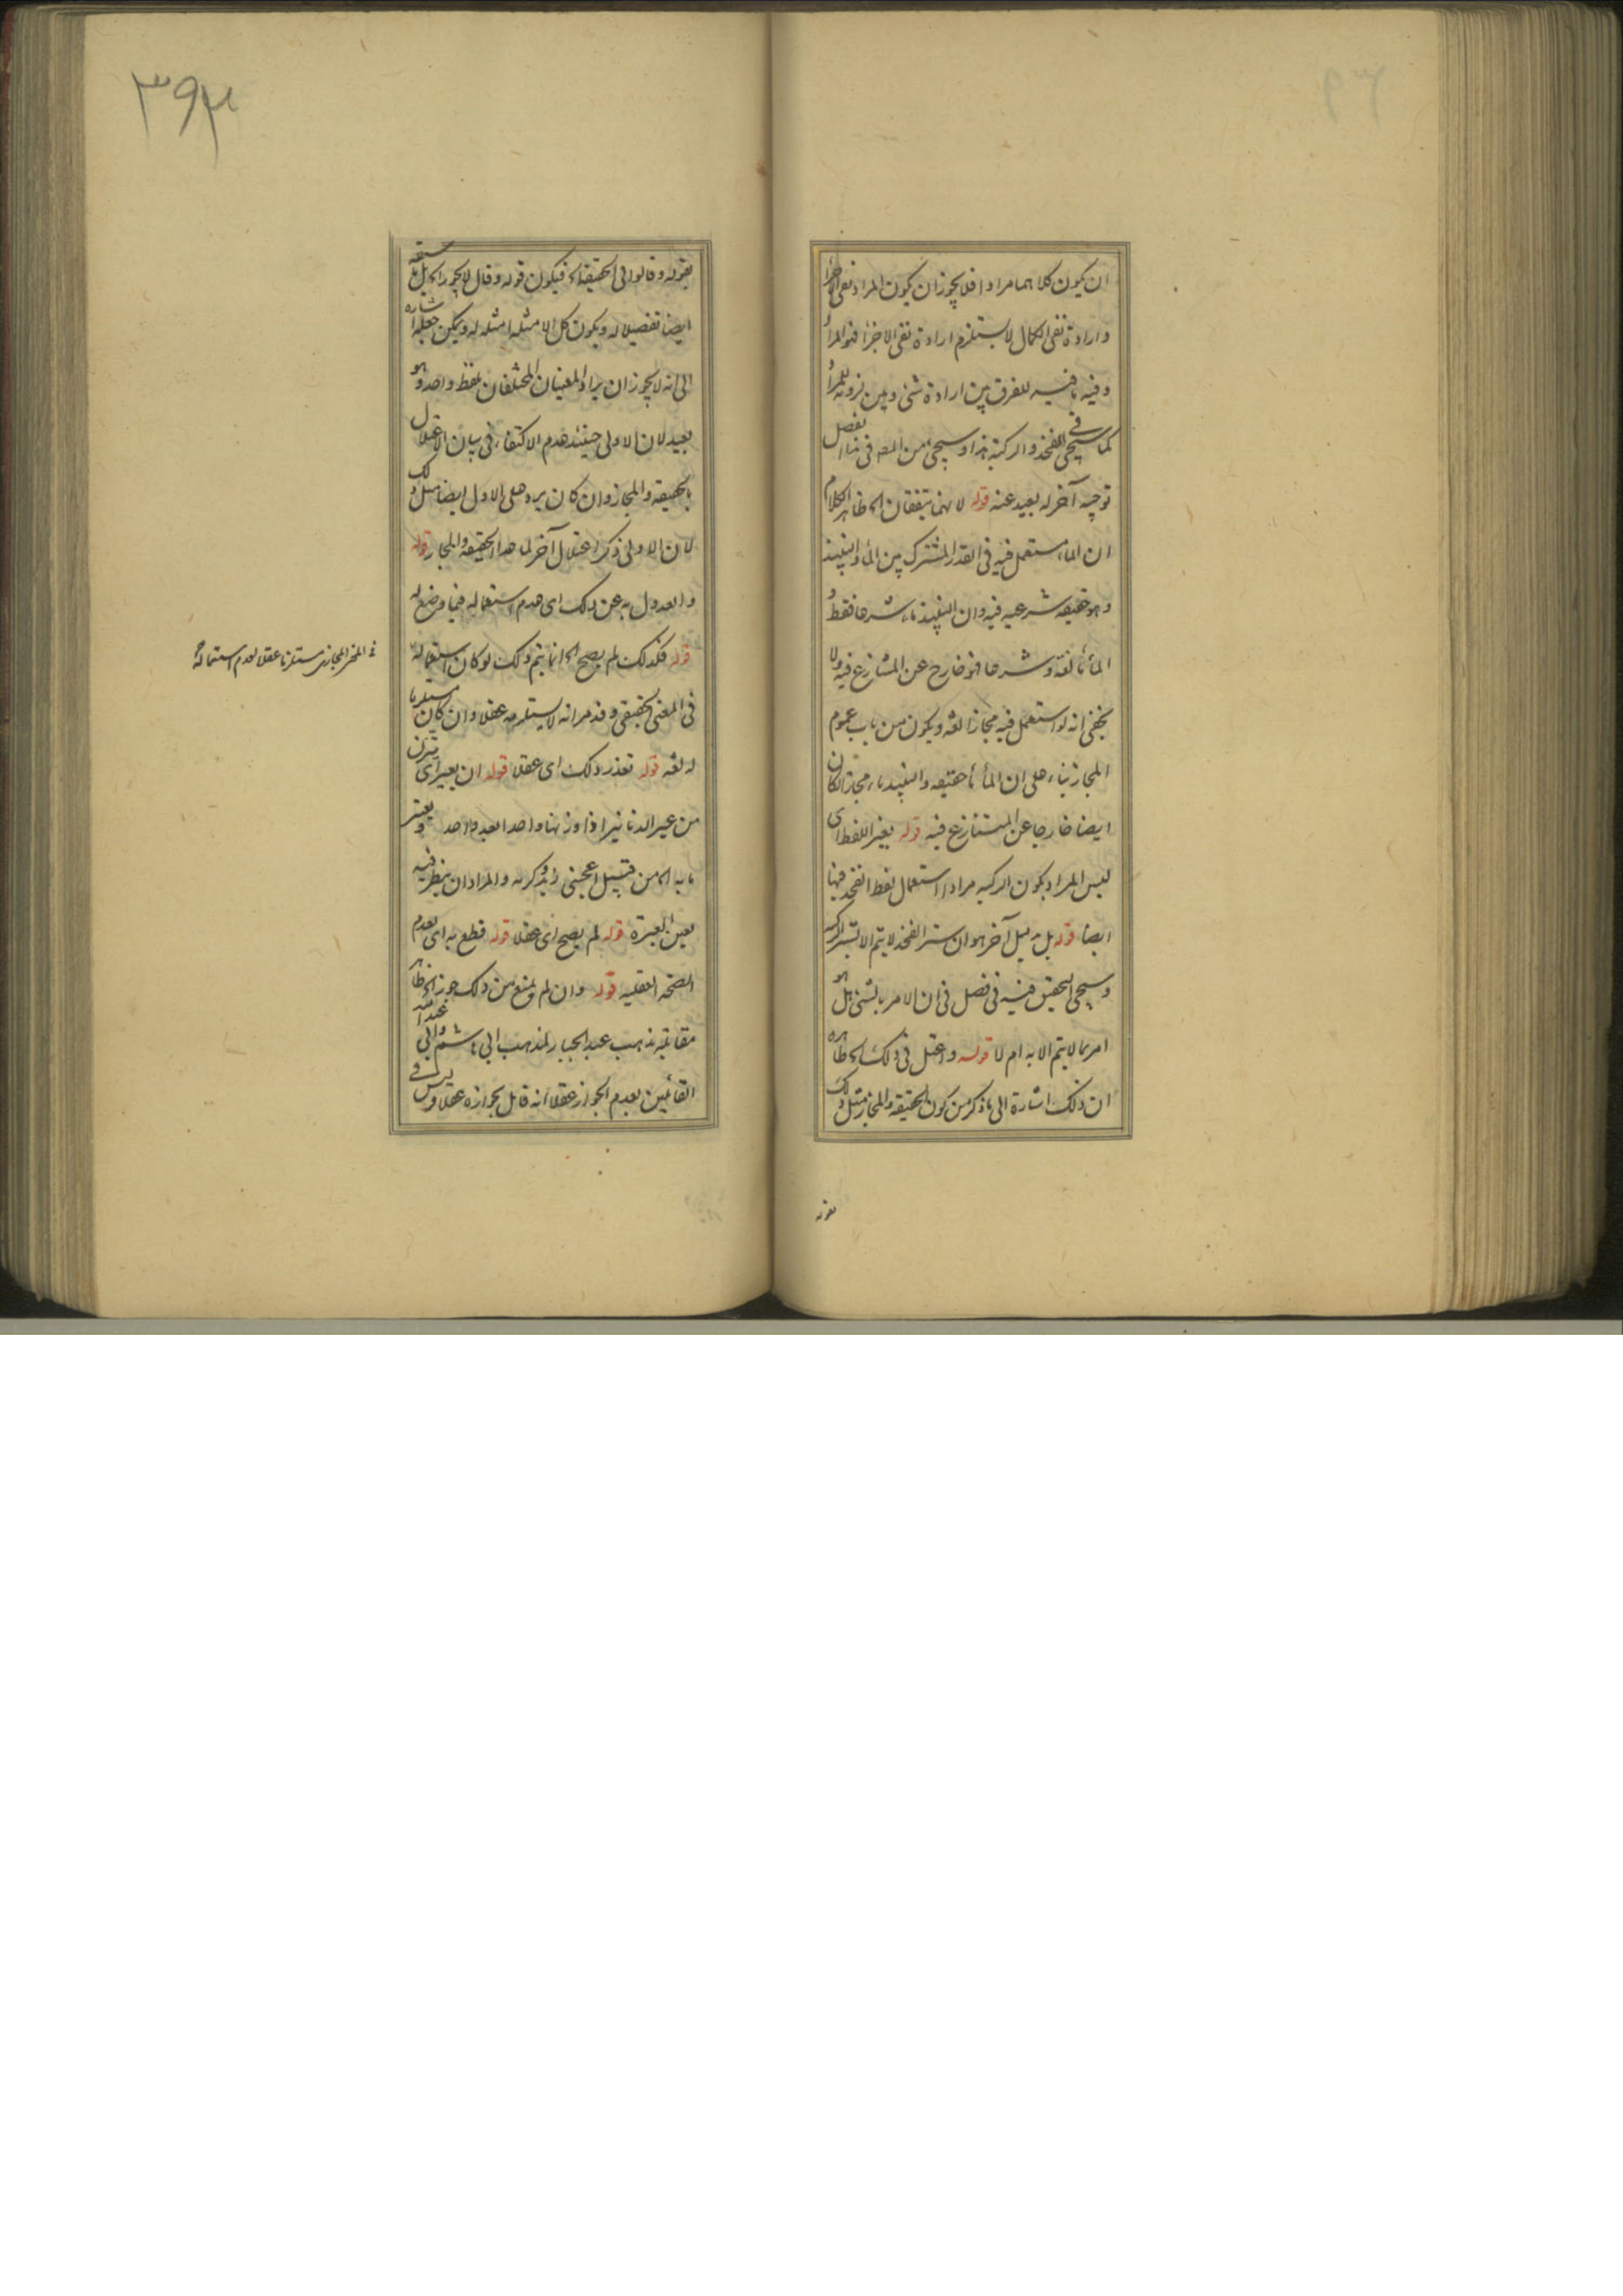 ان يكون كلاهما مرادا فلا يجوز ان يكون المراد نفى الاجزأ
وارادة نفى الكمال لا يستلزم ارادة نفى الاجزأ فهو المرأ
وفيه ما فيه للفرق بين ارادة شئ وبين لزومه للمرأ
كما سيجئ فى الفخذ والركبة هذا وسيجئ من المصـ فى هذا الفصل
توجيه آخر له بعيد عنه قوله لانهما يتفقان الخ ظاهر الكلام
ان الماء مستعمل فيه فى القدر المشترك بين المأ والنبيذ
وهو حقيقة شرعيه فيه وان النبيذ ماء شرعا فقط و
المأ مأ لغة وشرعا فهو خارج عن المتنازع فيه ولا
يخفى انه لو استعمل فيه مجازا لغة ويكون من باب عموم
المجاز بناء على ان المأ مأ حقيقة والنبيذ ماء مجازا لكان
ايضا خارجا عن المتنازع فيه قوله بغير اللفظ اى
ليس المراد بكون الركبه مرادا استعمال لفظ الفخذ فيها
ايضا قوله بل بدليل آخر هو ان ستر الفخذ لا يتم الا بستر الركبه
وسيجئ التحقيق فيه فى فصل فى ان الامر بالشئ هل هو
امر بما لا يتم الا به ام لا قوله واعتل فى ذلك الخ ظاهره
ان ذلك اشارة الى ما ذكر من كون الحقيقة والمجاز مثل ذلك
بقوله
٣٩٣
بقوله وقالوا فى الحقيقة الخ فيكون قوله وقال لا يجوز الخ بل
ايضا تفصيلا له ويكون كل الامثله امثله له ويمكن جعله اشاره
الى انه لا يجوز ان يراد المعنيان المختلفان بلفظ واحد وهو
بعيد لان الاولى حينئذ عدم الاكتفاء فى بيان الاعتلال
بالحقيقة والمجاز وان كان يرد على الاول ايضا مثل ذلك
لان الاولى ذكر اعتلال آخر لما عدا الحقيقة والمجاز قوله
والعدول به عن ذلك اى عدم استعماله فيما وضع له
قوله فكذلك لم يصح الخ انما يتم ذلك لو كان استعماله
فى المعنى المجازى مستلزما عقلا لعدم استعماله
فى المعنى الحقيقى وقد مر انه لا يستلزمه عقلا وان كان مستلزما
له لغة قوله تعذر ذلك اى عقلا قوله ان يعبر اى يتزن
من عير الدنانير اذا وزنها واحدا بعد واحد ويعتبر
ما به الخ من قبيل اعجبنى زيد وكرمه والمراد ان ينظر فيه
بعين العبرة قوله لم يصح اى عقلا قوله قطع به اى بعدم
الصحة العقليه قوله وان لم يمنع من ذلك جوز الخ ظاهر
مقابلة مذهب عبد الجبار لمذهب ابى هاشم وابى عبد الله
القائلين بعدم الجواز عقلا انه قائل بجوازه عقلا وليس فى